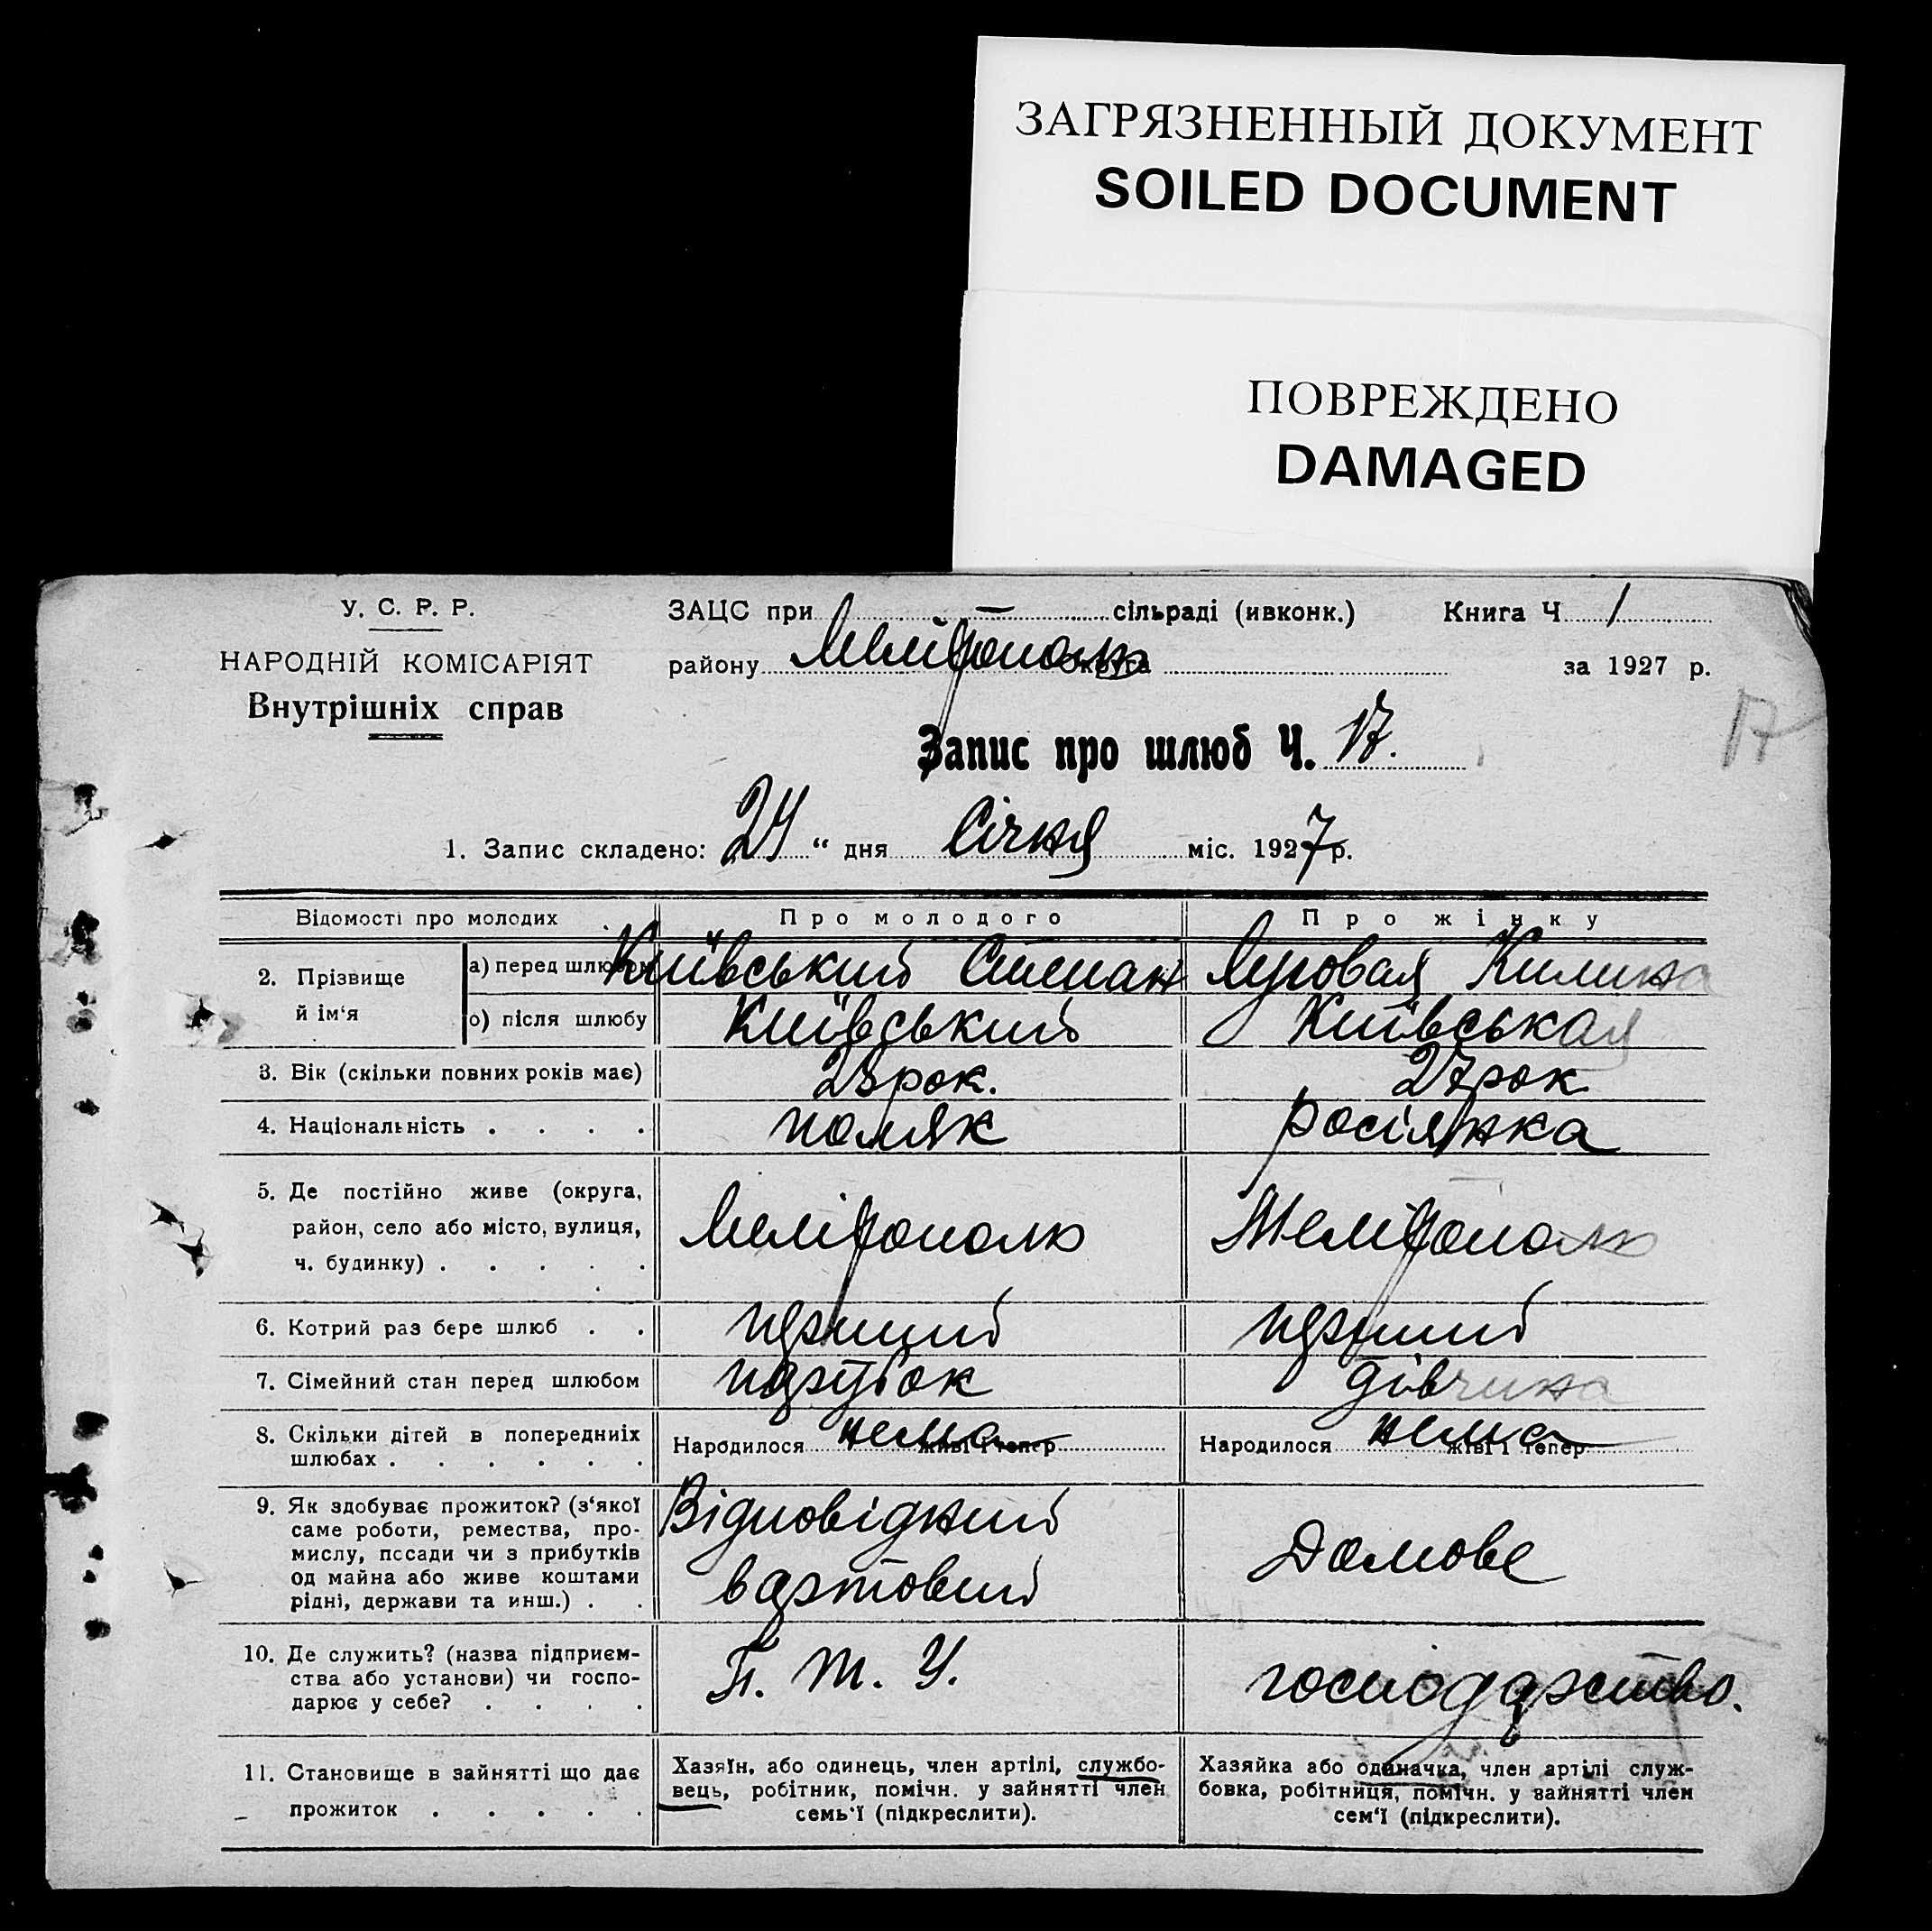 ЗАГРЯЗНЕННЫЙ ДОКУМЕНТ
SOILED DOCUMENT
ПОВРЕЖДЕНО
DAMAGED
У. С. Р. Р.
НАРОДНІЙ КОМІСАРІЯТ
Внутрішніх справ
ЗАЦС при — сільраді (ивконк.) Книга Ч 1
району Мелітополь Округа за 1927 р.
Запис про шлюб Ч. 17.
17
1. Запис складено: 24 “ дня Січня міс. 1927 р.
Відомості про молодих Про молодого Про жінку
2. Прізвище й ім‘я
а) перед шлюбом Київський Степан Луговая Килина
о) після шлюбу Київський Київськая
3. Вік (скільки повних років має) рок. 27 рок
4. Національність поляк росіянка
5. Де постійно живе (округа,
район, село або місто, вулиця,
ч. будинку) Мелітополь Мелітополь
6. Котрий раз бере шлюб перший перший
7. Сімейний стан перед шлюбом парубок дівчина
8. Скільки дітей в попередниіх
шлюбах Народилося нема живі і тепер Народилося нема живі і тепер
9. Як здобуває прожиток? (з‘якої
саме роботи, ремества, про-
мислу, посади чи з прибутків
од майна або живе коштами
рідні, держави та инш.)
Відповідний
вартовий
Домове
10. Де служить? (назва підприєм-
ства або установи) чи госпо-
дарює у себе?
господарство.
11. Становище в зайнятті що дає
прожиток
Хазяїн, або одинець, член артілі, службо-
вець, робітник, помічн. у зайнятті член
семь‘ї (підкреслити).
Хазяйка або одиначка, член артілі служ-
бовка, робітниця, помічн. у зайнятті член
сем‘ї (підкреслити).